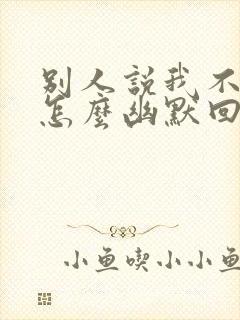 别人説我不
怎麼幽默回
小鱼喫小小鱼